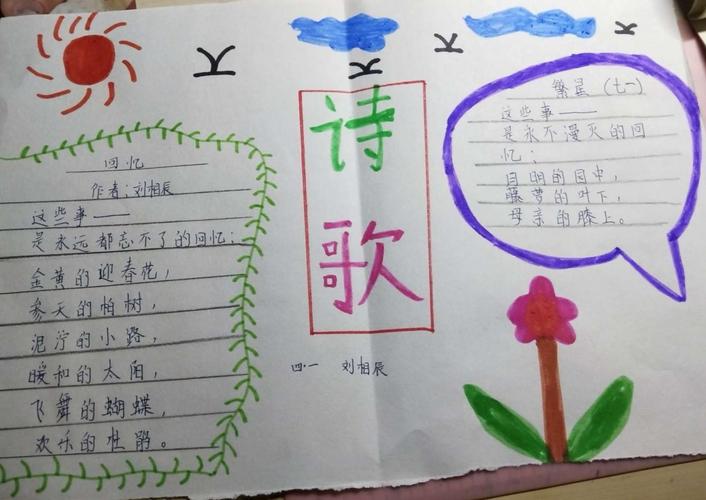 回忆
作者:刘相辰
这些事——
是永远都忘不了的回忆:
金黄的迎春花,
参天的帕树,
泥泞的小路,
暖和的太阳,
飞舞的蝴蝶,
欢乐的
诗
歌
四.一 刘相辰
繁星(七一)
这些事——
是永不漫灭的回
忆:
月明的园中,
藤萝的叶下,
母亲的膝上。